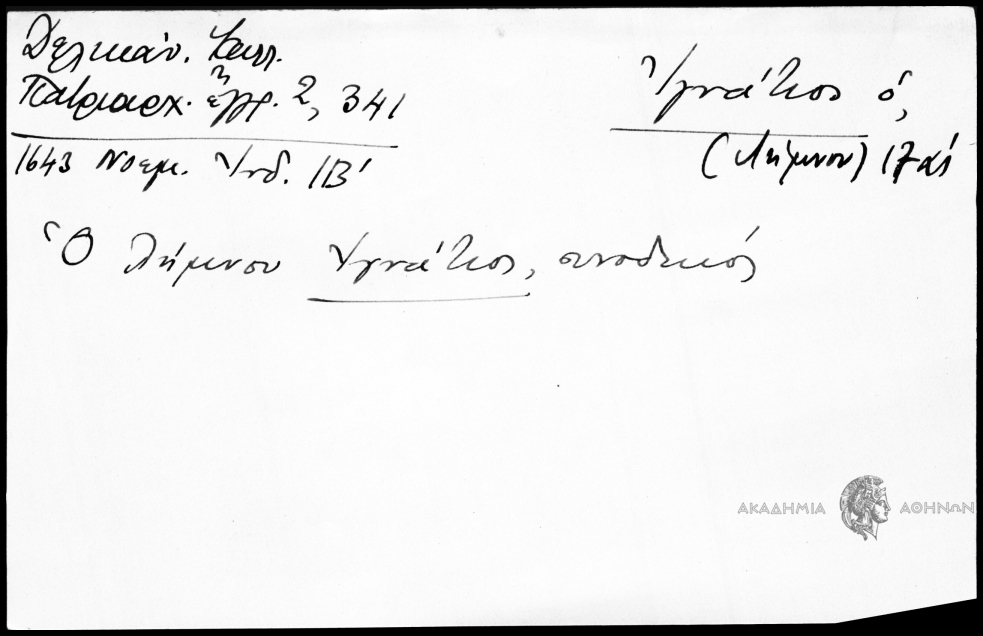 Δελικάν. Καλλ.
Πατριαρχ. ἔγγρ. 2, 341
1643 Νοεμ. Ἰνδ. ΙΒ'
Ἰγνάτιος ὁ,
(Λήμνου) 17 αἰ
Ὁ Λήμνου Ἰγνάτιος, συνοδικός
ΑΚΑΔΗΜΙΑ ΑΘΗΝΩΝ